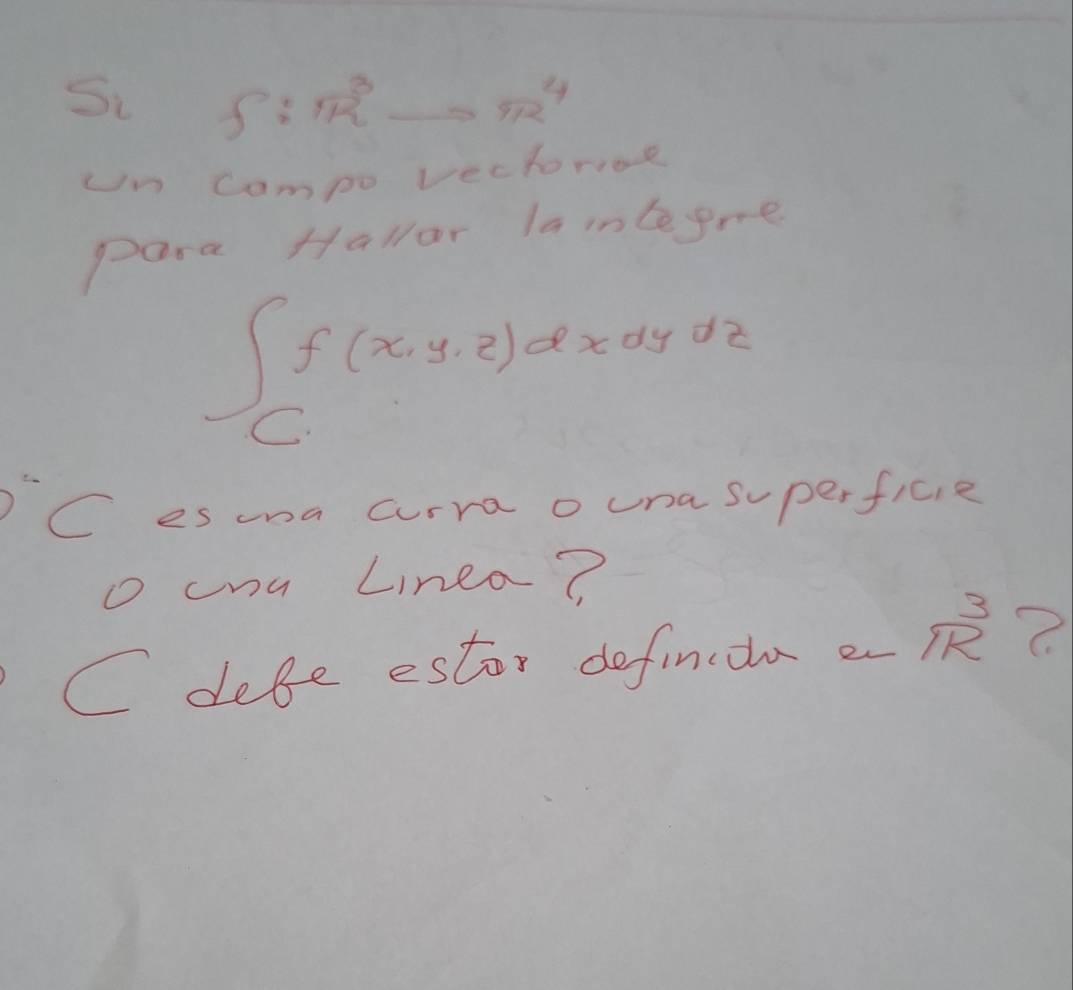 Si f: ℝ³ → ℝ⁴
un campo vectorial
para Hallar la integral
∫_C f(x, y, z) dx dy dz
C es una curva o una superficie
o una Linea?
C debe estar definida en ℝ³?